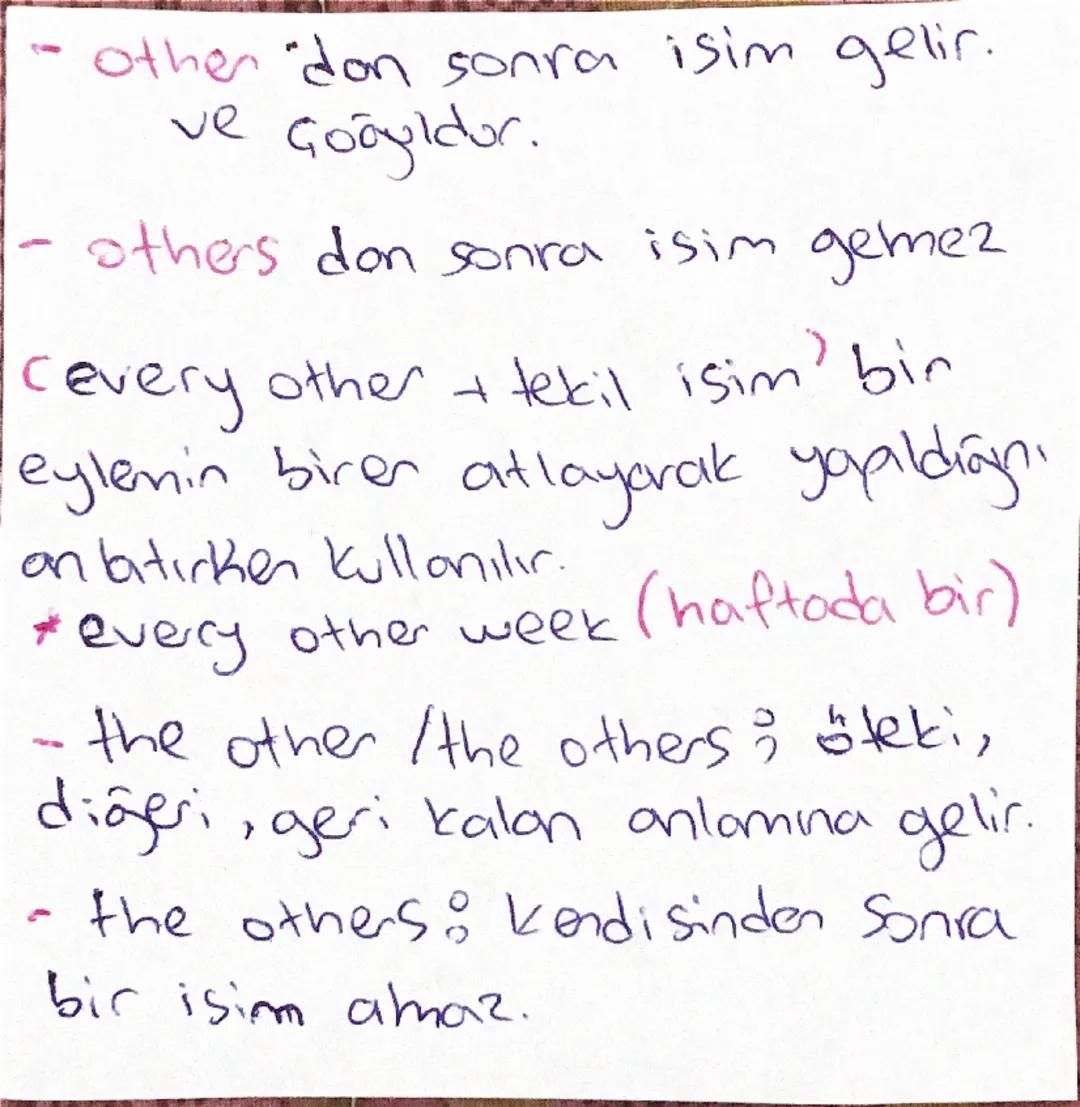 - other "dan sonra isim gelir.
ve çoğuldur.
- others dan sonra isim gelmez
(every other + tekil isim) bir
eylemin birer atlayarak yapıldığını
anlatırken kullanılır.
* every other week (haftada bir)
- the other / the others ; öteki,
diğeri, geri kalan anlamına gelir.
- the others : kendisinden sonra
bir isim almaz.